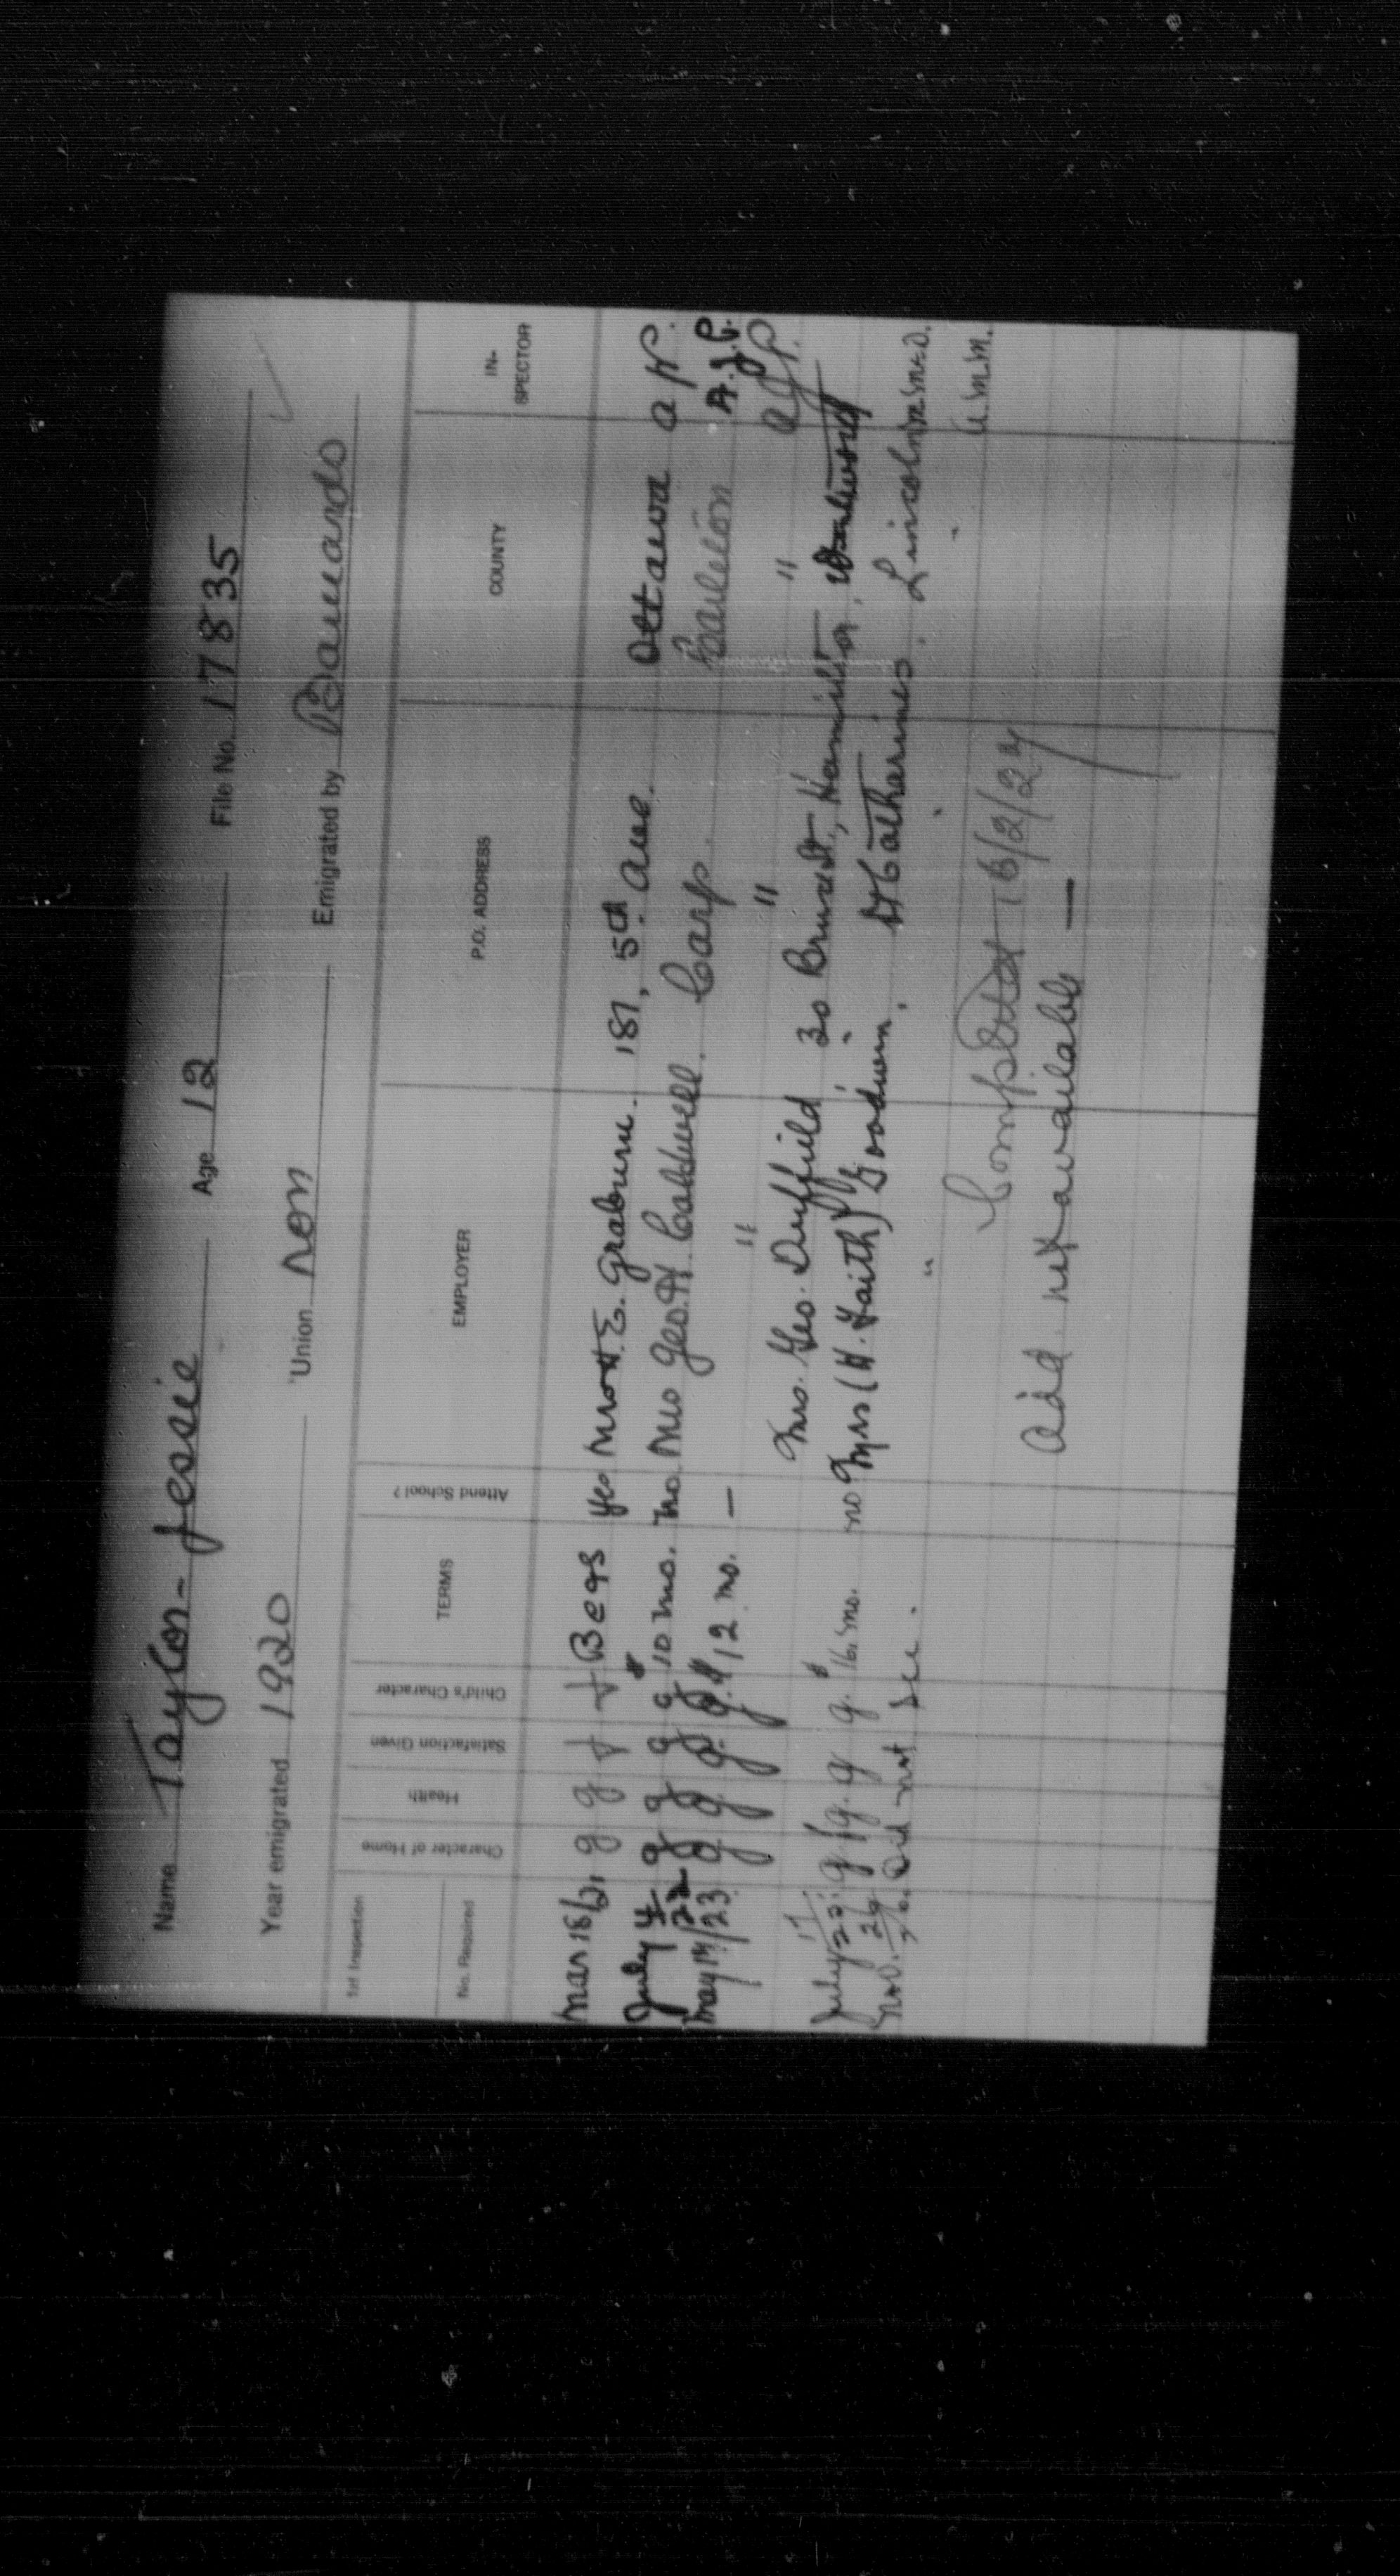 Name Taylor - Jessie Age 12 File No. 17835
Year emigrated 1920 Union non Emigrated by Barnardo
1st Inspection
No. Required
Character of Home
Health
Satisfaction Given
Child's Character
TERMS
Attend School?
EMPLOYER
P.O. ADDRESS
COUNTY
IN-SPECTOR
Mar 18/21 g g f f B e g s Yes Mrs H. E. Graburn. 187, 5th Ave. Ottawa a P.
July 4/22 g g g g $10 mo. no. Mrs Geo. H. Caldwell. Carp. Carleton A.J.P.
May 14/23 g g g. g. $12 mo. — " " " a J P.
Mrs. Geo. Duffield 30 Brant St., Hamilton, Wentworth
July 22 g g. g g. $16 mo. no Mrs (H. Faith) Goodwin. St Catharines. Lincoln M.D.
Did not see. "
Completed 16/2/27
Add. not available —